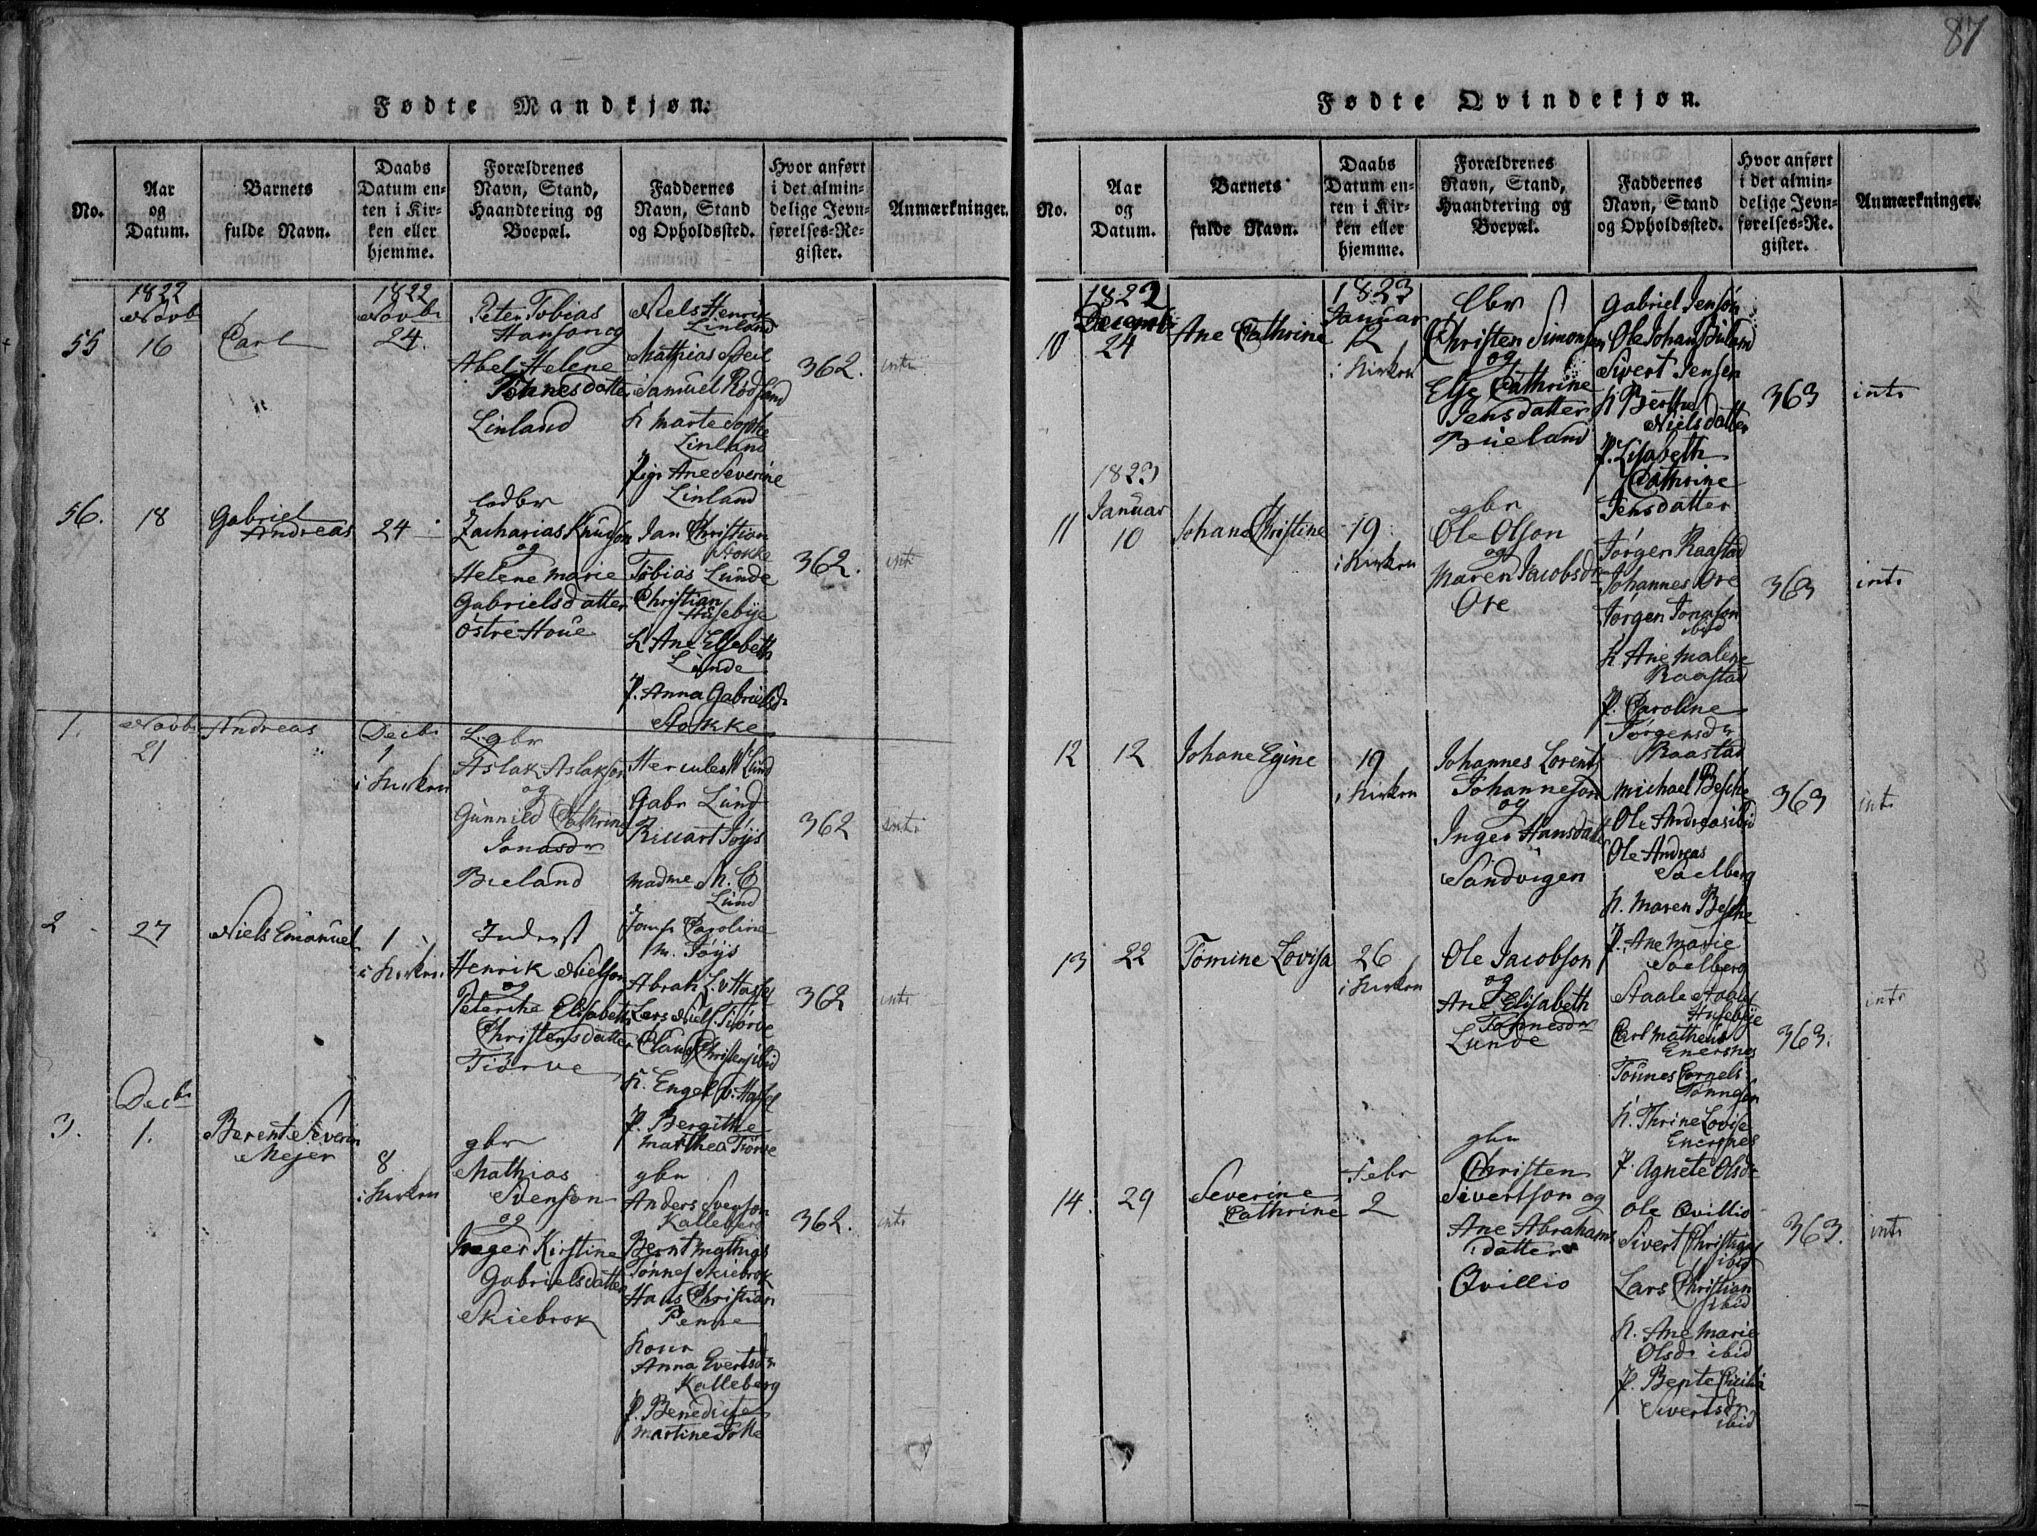 87
Fødte Mandkjøn.
No.
Aar
og
Datum.
Barnets
fulde Navn.
Daabs
Datum en-
ten i Kir-
ken eller
hjemme.
Forældrenes
Navn, Stand,
Haandtering og
Boepæl.
Faddernes
Navn, Stand
og Opholdssted.
Hvor anført
i det almin-
delige Jevn-
førelses-Re-
gister.
Anmærkninger.
55
1822
Novb
16
Carl
1822
Novbr
24.
Peter Tobias
Hanson og
Abel Helene
Tønnesdatter
Linland
Niels Henrik
Linland
Mathias Steil
Samuel Rødsland
K Marte Sophie
Linland
Pige Ane Severine
Linland
362.
intr
56.
18
Gabriel
Andreas
24
Zacharias Knudson
og
Helene Marie
Gabrielsdatter
Østre Houe
Jan Christian
Stokke
Tobias Lunde
Christian
Husebye
K Ane Elsebeth
Lunde
P. Anna Gabrielsdr
Stokke
362.
intr
1.
Novbr
21
Andreas
Decbr
1
i Kirken
L. gbr
Aslak Aslakson
og
Gunnild Cathrine
Jonasdr
Bieland
Hercules W Lund
Gabr Lund
Rieuart Føyis
Madme M. C
Lund
Jomf Caroline
M. Føyis
362
intr
2
27
Niels Emanuel
1
i Kirken
Inderst
Henrik Nielson
og
Peterike Elisabeth
Christensdatter
Tiørve
Abrah L. v Hasfel
Lars Niels. Tiørve
Claus Christens ibid
K. Engel v. Hasfel
P. Bergithe
Marthea Tiørve
362
intr
3.
Decbr
1.
Berent Severin
Mejer
8
i Kirken
gbr
Mathias
Svenson
og
Inger Kirstine
Gabrielsdatter
Skiebrok
gbr
Anders Svenson
Kalleberg
Bernt Mathias
Tønnes Skiebrok
Hans Christian
Penne
Kone
Anna Evertsdr
Kalleberg
P. Benedicte
Martine Folke
362.
intr
Fødte Qvindekjøn.
No.
Aar
og
Datum.
Barnets
fulde Navn.
Daabs
Datum en-
ten i Kir-
ken eller
hjemme.
Forældrenes
Navn, Stand,
Haandtering og
Boepæl.
Faddernes
Navn, Stand
og Opholdssted.
Hvor anført
i det almin-
delige Jevn-
førelses-Re-
gister.
Anmærkninger.
10
1822
Decembr
24
Ane Cathrine
1823
Januar
12
i Kirken
Christen Simonsen
og
Else Cathrine
Jensdatter
Bueland
Gabriel Jensøn
Ole Johan Buland
Sivert Jensen
K Berthe
Nielsdatter
P. Lisabeth
Cathrine
Jensdatter
363
intr
11
1823
Januar
10
Johana Christine
19
i Kirken
gbr
Ole Olson
og
Maren Jacobsdr
Ore
Jørgen Raastad
Johannes Ore
Jørgen Jonason
ibid
K Ane Malene
Raastad
P. Caroline
Jørgensdr
Raastad
363
intr
12
12
Johane Egine
19
i Kirken
Johannes Lorents
Johanneson
og
Inger Hansdatter
Sandvigen
Michael Besche
Ole Andreas ibid
Ole Andreas
Saelberg
K. Maren Besche
P. Ane Marie
Saelberg
363
intr
13
22
Tomine Lovisa
26
i Kirken
Ole Jacobson
og
Ane Elisabeth
Tønnesdr
Lunde
Staale Staales
Husebye
Carl Matheus
Enersnes
Tønnes Cornels
Tønneson
K. Thrine Lovise
Enersnes
P. Agnete Olsdr
363.
intr
14.
29
Severine
Cathrine
Febr
2
gbr
Christen
Sivertson og
Ane Abrahams
datter
Qvillio
Ole Qvillio
Sivert Christians
ibid
Lars Christian
ibid
K. Ane Marie
Olsdr ibid
P. Bente Cecilia
Sivertsdr
ibid
363.
intr